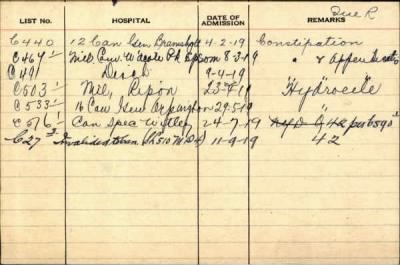 LIST NO. HOSPITAL DATE OF ADMISSION REMARKS
C440 12 Can Gen Bramshott 4-2-19 Constipation
C467 Mil. Con. Woodcote Pk Epsom 8-3-19 " & Appendicitis
C491 Disch 9-4-19
C503 Mil, Ripon "Hydrocele"
C533 16 Can Gen Orpington 29-5-19
C576 Can Spec Witley 24-7-19
C27 Invalided to Can 11-9-19 42